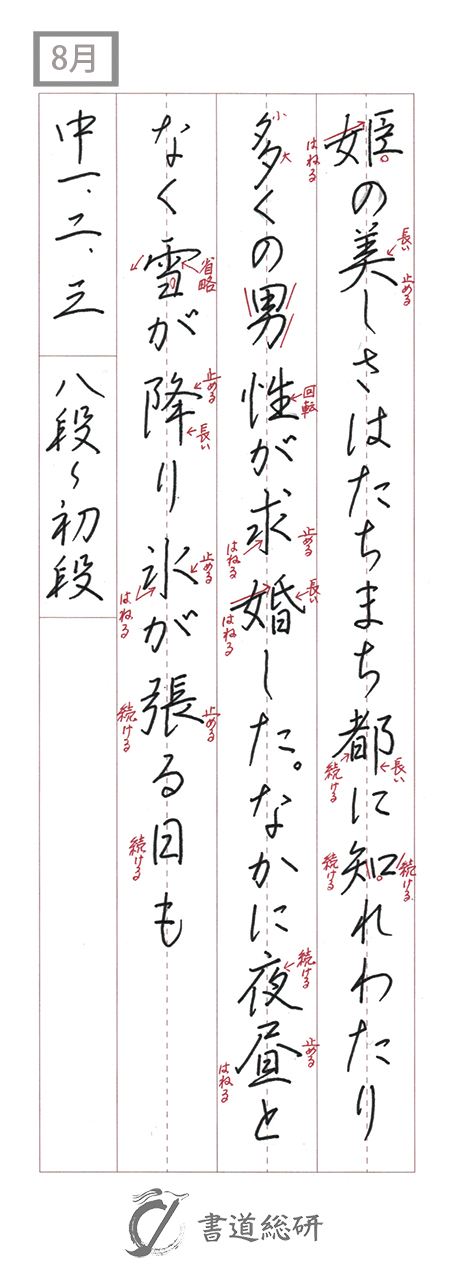 8月
姫の美しさはたちまち都に知れわたり
はねる
長い
止める
長い
続ける
続ける
続ける
多くの男性が求婚した。なかに夜昼と
小
大
回転
止める
はねる
長い
はねる
続ける
止める
はねる
なく雪が降り氷が張る日も
省略
止める
長い
止める
はねる
止める
続ける
続ける
中一、二、三
八段〜初段
書道総研